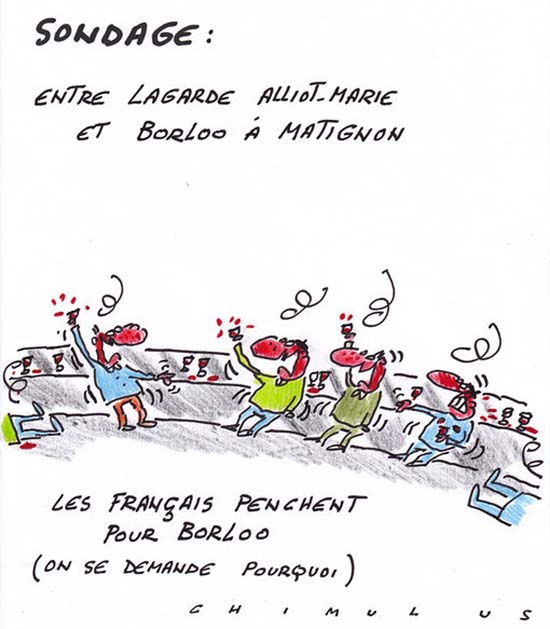 SONDAGE :
ENTRE LAGARDE ALLIOT-MARIE
ET BORLOO À MATIGNON
LES FRANÇAIS PENCHENT
POUR BORLOO
(ON SE DEMANDE POURQUOI)
CHIMULUS